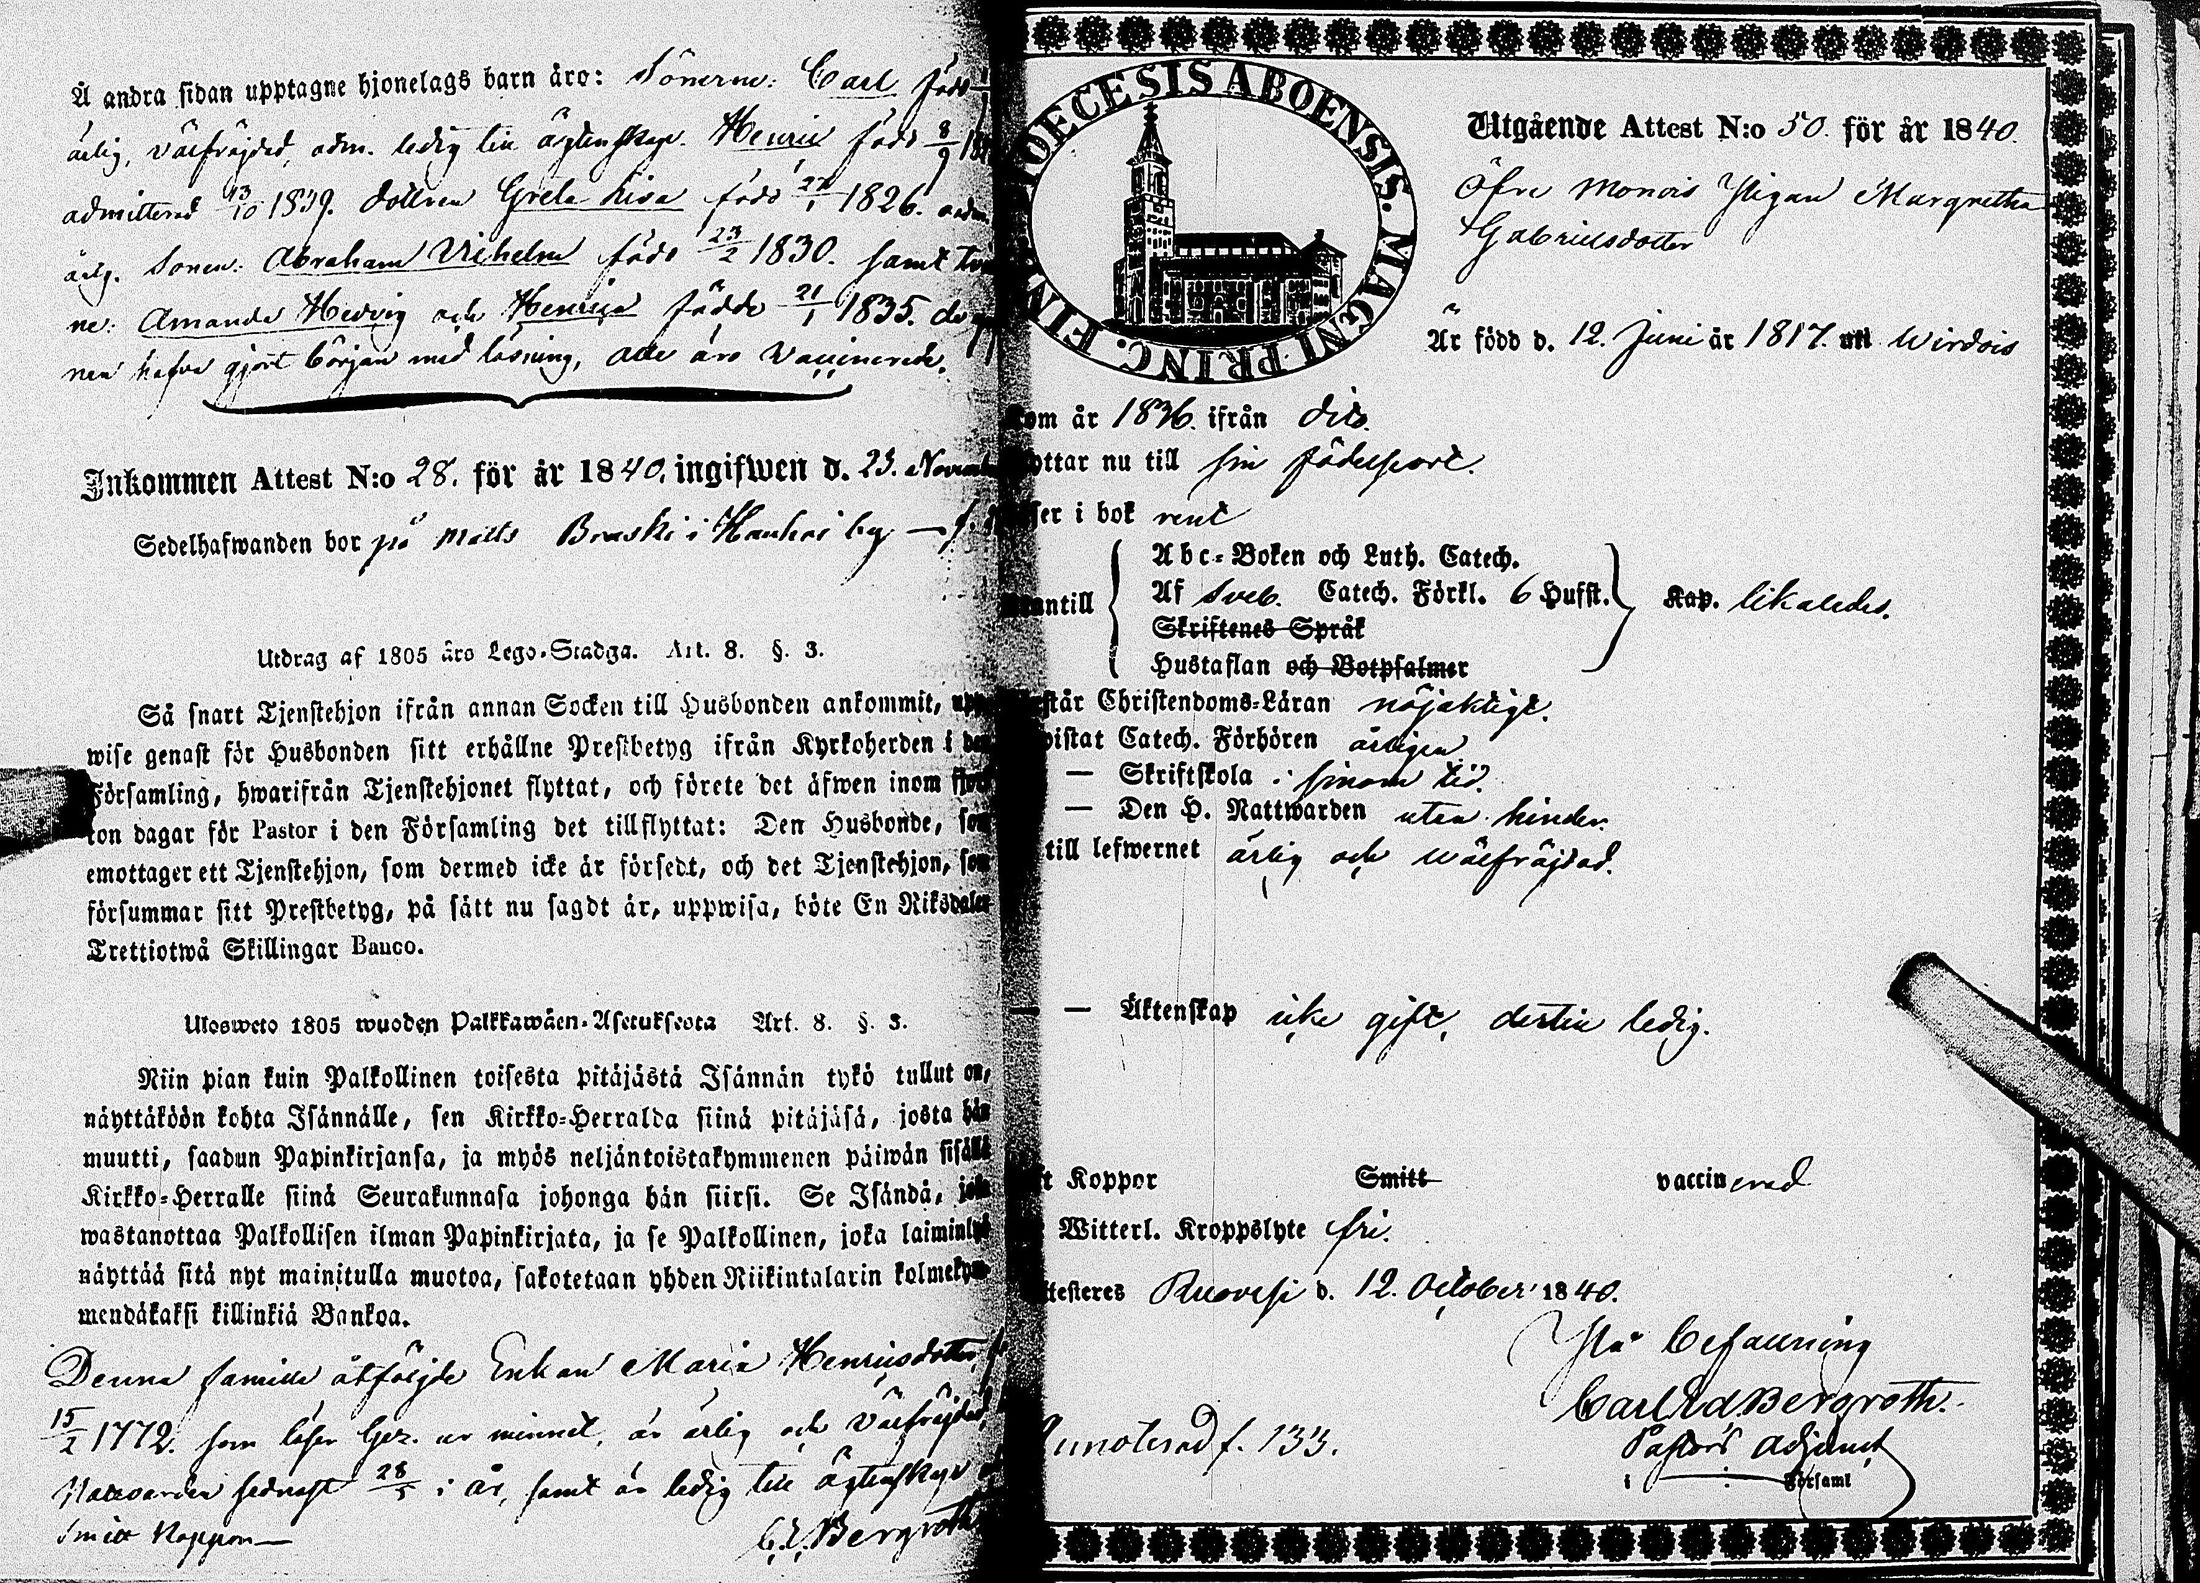 Å andra sidan upptagne hjonelags barn äro: Sönerne: Carl född
ärlig, välfräjdad, adm. ledig till ägtenskap. Henric född 8/9
admitterad 13/10 1839. dottren Greta Lisa född 27/1 1826.
ärlig. Sonen: Abraham Vilhelm född 23/2 1830. samt
ne: Amanda Hedvig och Henrica födde 21/1 1835.
nen hafva gjort början med läsning, alla äro vaccinerade.
Inkommen Attest N:o 28. för år 1840. ingifwen d. 23. Novemb
Sedelhafwanden bor på Matts Braski i Hauhois by
Utdrag af 1805 års Lego-Stadga. Art. 8. §. 3.
Så snart Tjenstehjon ifrån annan Socken till Husbonden ankommit, upp-
wise genast för Husbonden sitt erhållne Prestbetyg ifrån Kyrkoherden i den
Församling, hwarifrån Tjenstehjonet flyttat, och förete det äfwen inom fjor-
ton dagar för Pastor i den Församling det tillflyttat: Den Husbonde, som
emottager ett Tjenstehjon, som dermed icke är försedt, och det Tjenstehjon, som
försummar sitt Prestbetyg, på sätt nu sagdt är, uppwisa, böte En Riksdaler
Trettiotwå Skillingar Banco.
Ulosweto 1805 wuoden Palkkawäen-Asetuksesta Art. 8. §. 3.
Niin pian kuin Palkollinen toisesta pitäjästä Isännän tykö tullut on,
näyttäköön kohta Isännälle, sen Kirkko-Herralda siinä pitäjäsä, josta hän
muutti, saadun Papinkirjansa, ja myös neljäntoistakymmenen päiwän sisällä
Kirkko-Herralle siinä Seurakunnasa johonga hän siirsi. Se Isändä, joka
wastanottaa Palkollisen ilman Papinkirjata, ja se Palkollinen, joka laiminlyö
näyttää sitä nyt mainitulla muotoa, sakotetaan yhden Riikintalarin kolmekym-
mendäkaksi killinkiä Bankoa.
Denna familie åtföljde Enkan Maria Henricsdotter,
15/2 1772. som läser ur minnet, är ärlig och välfräjdad,
Nattvarden sednast i år, samt är ledig till ägtenskap
Smitt Koppor—
C. E. Bergroth
DIOECESIS ABOENSIS. MAGNI PRINC. FINL.
Utgående Attest N:o 50. för år 1840.
Öfre Monois Pigan Margretha
Gabrielsdotter
Är född d. 12. Juni år 1817. uti Wirdois
kom år 1836. ifrån dito.
yttar nu till sin födelseort.
äser i bok rent
Abc-Boken och Luth. Catech.
utantill Af Sveb. Catech. Förkl. 6 Hufst. Kap. likaledes.
Skriftenes Språk
Hustaflan och Botpsalmer
står Christendoms-Läran nöjaktigt.
vistat Catech. Förhören årligen
— Skriftskola i sinom tid.
— Den H. Nattwarden utan hinder.
till lefwernet ärlig och wälfräjdad.
— — Äktenskap icke gift, dertill ledig.
ft Koppor Smitt vaccinerad
Witterl. Kroppslyte fri.
ttesteres Ruovesi d. 12. October 1840.
På befallning
Carl Ed. Bergroth.
Pastors Adjunct
i Församl
Annoterad f. 133.